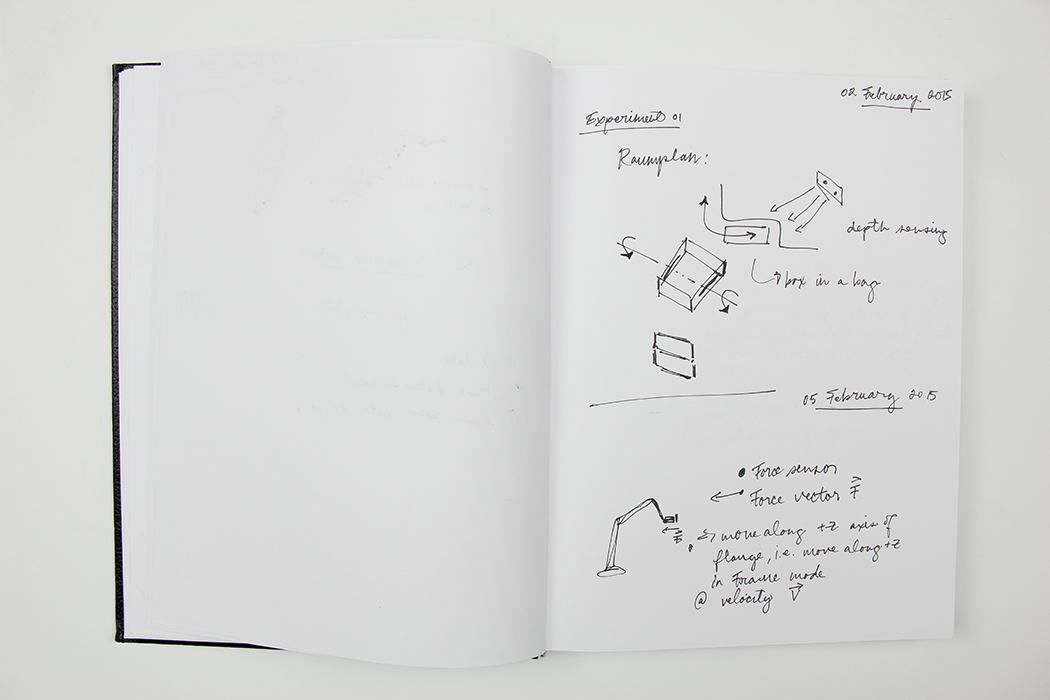 02 February 2015
Experiment 01
Raumplan:
depth sensing
box in a bag
05 February 2015
Force sensor
Force vector F
F
move along +z axis of
flange, i.e. move along +z
in Frame mode
@ velocity V